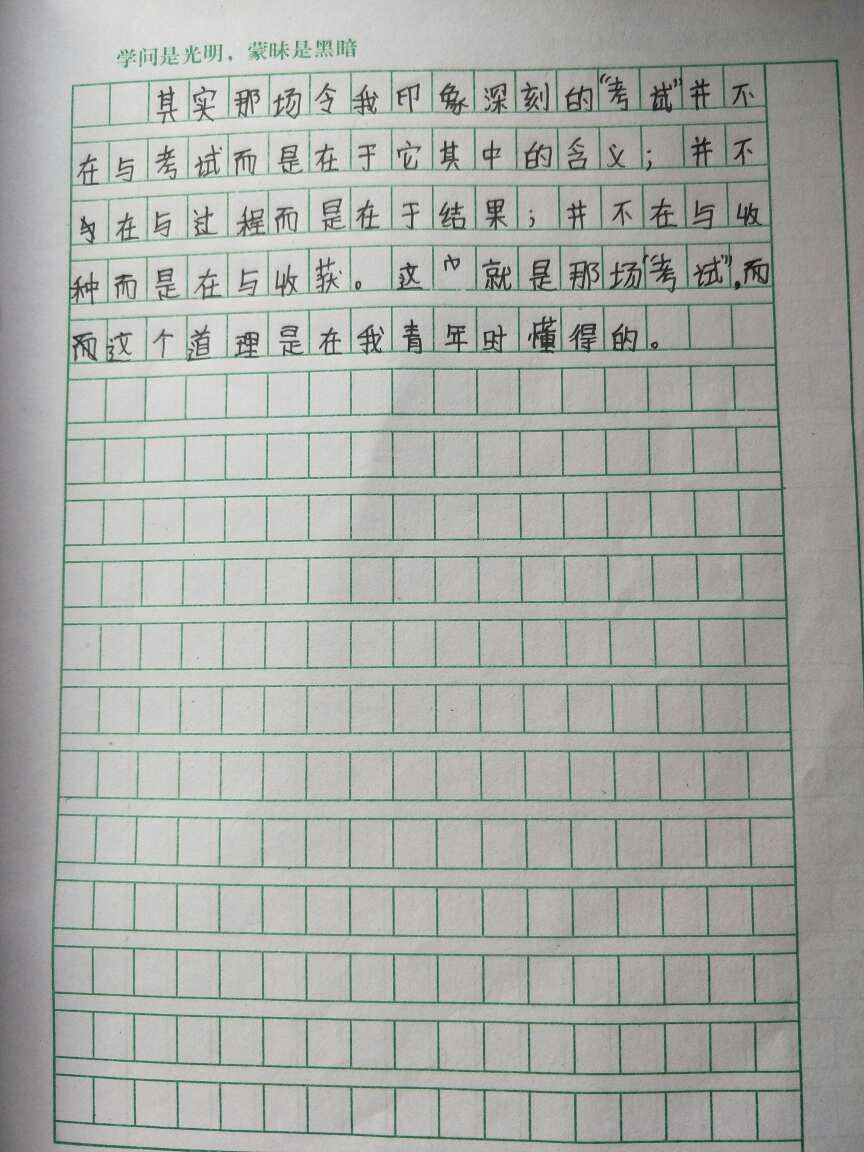 学问是光明，蒙昧是黑暗
其实那场令我印象深刻的“考试”并不
在与考试而是在于它其中的含义；并不
在与过程而是在于结果；并不在与收
种而是在与收获。这就是那场“考试”，而
而这个道理是在我青年时懂得的。